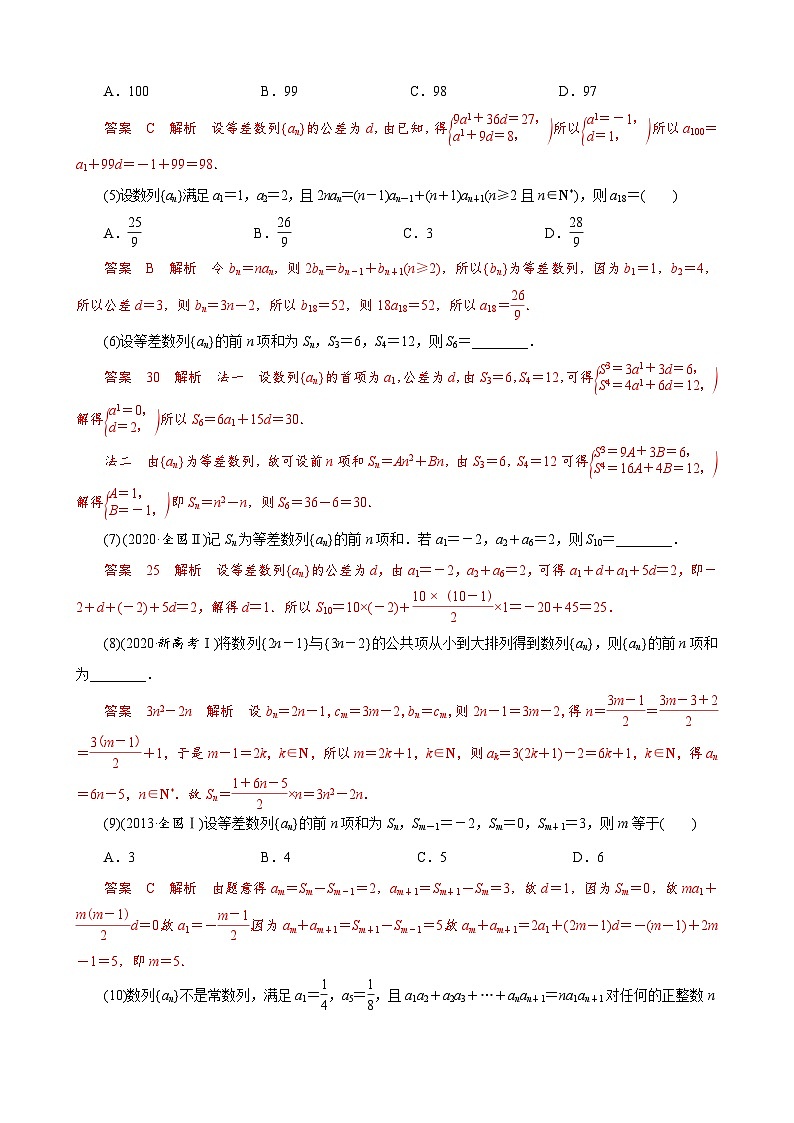 A．100 B．99 C．98 D．97
答案 C 解析 设等差数列{aₙ}的公差为 d，由已知，得{9a¹＋36d＝27，a¹＋9d＝8，)所以{a¹＝－1，d＝1，)所以 a₁₀₀＝
a₁＋99d＝－1＋99＝98.
(5)设数列{aₙ}满足 a₁＝1，a₂＝2，且 2naₙ＝(n－1)aₙ₋₁＋(n＋1)aₙ₊₁(n≥2 且 n∈N*)，则 a₁₈＝( )
A．25/9 B．26/9 C．3 D．28/9
答案 B 解析 令 bₙ＝naₙ，则 2bₙ＝bₙ₋₁＋bₙ₊₁(n≥2)，所以{bₙ}为等差数列，因为 b₁＝1，b₂＝4，
所以公差 d＝3，则 bₙ＝3n－2，所以 b₁₈＝52，则 18a₁₈＝52，所以 a₁₈＝26/9.
(6)设等差数列{aₙ}的前 n 项和为 Sₙ，S₃＝6，S₄＝12，则 S₆＝________．
答案 30 解析 法一 设数列{aₙ}的首项为 a₁，公差为 d，由 S₃＝6，S₄＝12，可得{S³＝3a¹＋3d＝6，S⁴＝4a¹＋6d＝12，)
解得{a¹＝0，d＝2，)所以 S₆＝6a₁＋15d＝30.
法二 由{aₙ}为等差数列，故可设前 n 项和 Sₙ＝An²＋Bn，由 S₃＝6，S₄＝12 可得{S³＝9A＋3B＝6，S⁴＝16A＋4B＝12，)
解得{A＝1，B＝－1，)即 Sₙ＝n²－n，则 S₆＝36－6＝30.
(7) (2020·全国Ⅱ)记 Sₙ为等差数列{aₙ}的前 n 项和．若 a₁＝－2，a₂＋a₆＝2，则 S₁₀＝________．
答案 25 解析 设等差数列{aₙ}的公差为 d，由 a₁＝－2，a₂＋a₆＝2，可得 a₁＋d＋a₁＋5d＝2，即－
2＋d＋(－2)＋5d＝2，解得 d＝1．所以 S₁₀＝10×(－2)＋10×(10－1)/2×1＝－20＋45＝25．
(8)(2020·新高考Ⅰ)将数列{2n－1}与{3n－2}的公共项从小到大排列得到数列{aₙ}，则{aₙ}的前 n 项和
为________．
答案 3n²－2n 解析 设 bₙ＝2n－1，cₘ＝3m－2，bₙ＝cₘ，则 2n－1＝3m－2，得 n＝3m－1/2＝3m－3＋2/2
＝3(m－1)/2＋1，于是 m－1＝2k，k∈N，所以 m＝2k＋1，k∈N，则 aₖ＝3(2k＋1)－2＝6k＋1，k∈N，得 aₙ
＝6n－5，n∈N*．故 Sₙ＝1＋6n－5/2×n＝3n²－2n.
(9)(2013·全国Ⅰ)设等差数列{aₙ}的前 n 项和为 Sₙ，Sₘ₋₁＝－2，Sₘ＝0，Sₘ₊₁＝3，则 m 等于( )
A．3 B．4 C．5 D．6
答案 C 解析 由题意得 aₘ＝Sₘ－Sₘ₋₁＝2，aₘ₊₁＝Sₘ₊₁－Sₘ＝3，故 d＝1，因为 Sₘ＝0，故 ma₁＋
m(m－1)/2d＝0，故 a₁＝－m－1/2，因为 aₘ＋aₘ₊₁＝Sₘ₊₁－Sₘ₋₁＝5，故 aₘ＋aₘ₊₁＝2a₁＋(2m－1)d＝－(m－1)＋2m
－1＝5，即 m＝5.
(10)数列{aₙ}不是常数列，满足 a₁＝1/4，a₅＝1/8，且 a₁a₂＋a₂a₃＋…＋aₙaₙ₊₁＝na₁aₙ₊₁ 对任何的正整数 n